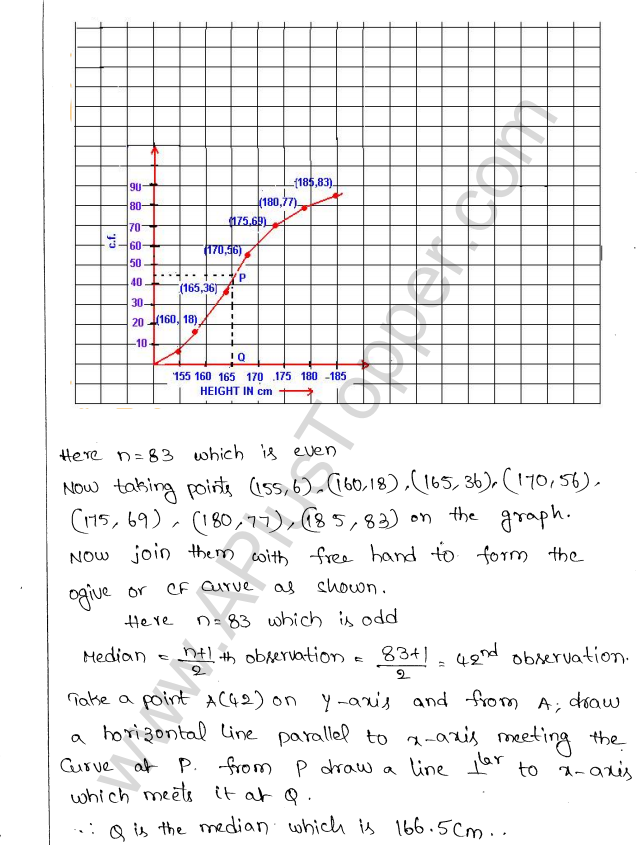 (185,83)
90
(180,77)
80
(175,69)
70
c.f.
60
(170,56)
50
40
P
(165,36)
30
20
(160, 18)
10
Q
155 160 165 170 175 180 185
HEIGHT IN cm
www.APlusTopper.com
Here n=83 which is even
Now taking points (155,6), (160,18), (165,36), (170,56),
(175,69), (180,77), (185,83) on the graph.
Now join them with free hand to form the
ogive or CF curve as shown.
Here n=83 which is odd
Median = n+1/2 th observation = 83+1/2 = 42nd observation.
Take a point A(42) on y-axis and from A, draw
a horizontal line parallel to x-axis meeting the
Curve at P. from P draw a line ⊥lar to x-axis
which meets it at Q.
∴ Q is the median which is 166.5cm..